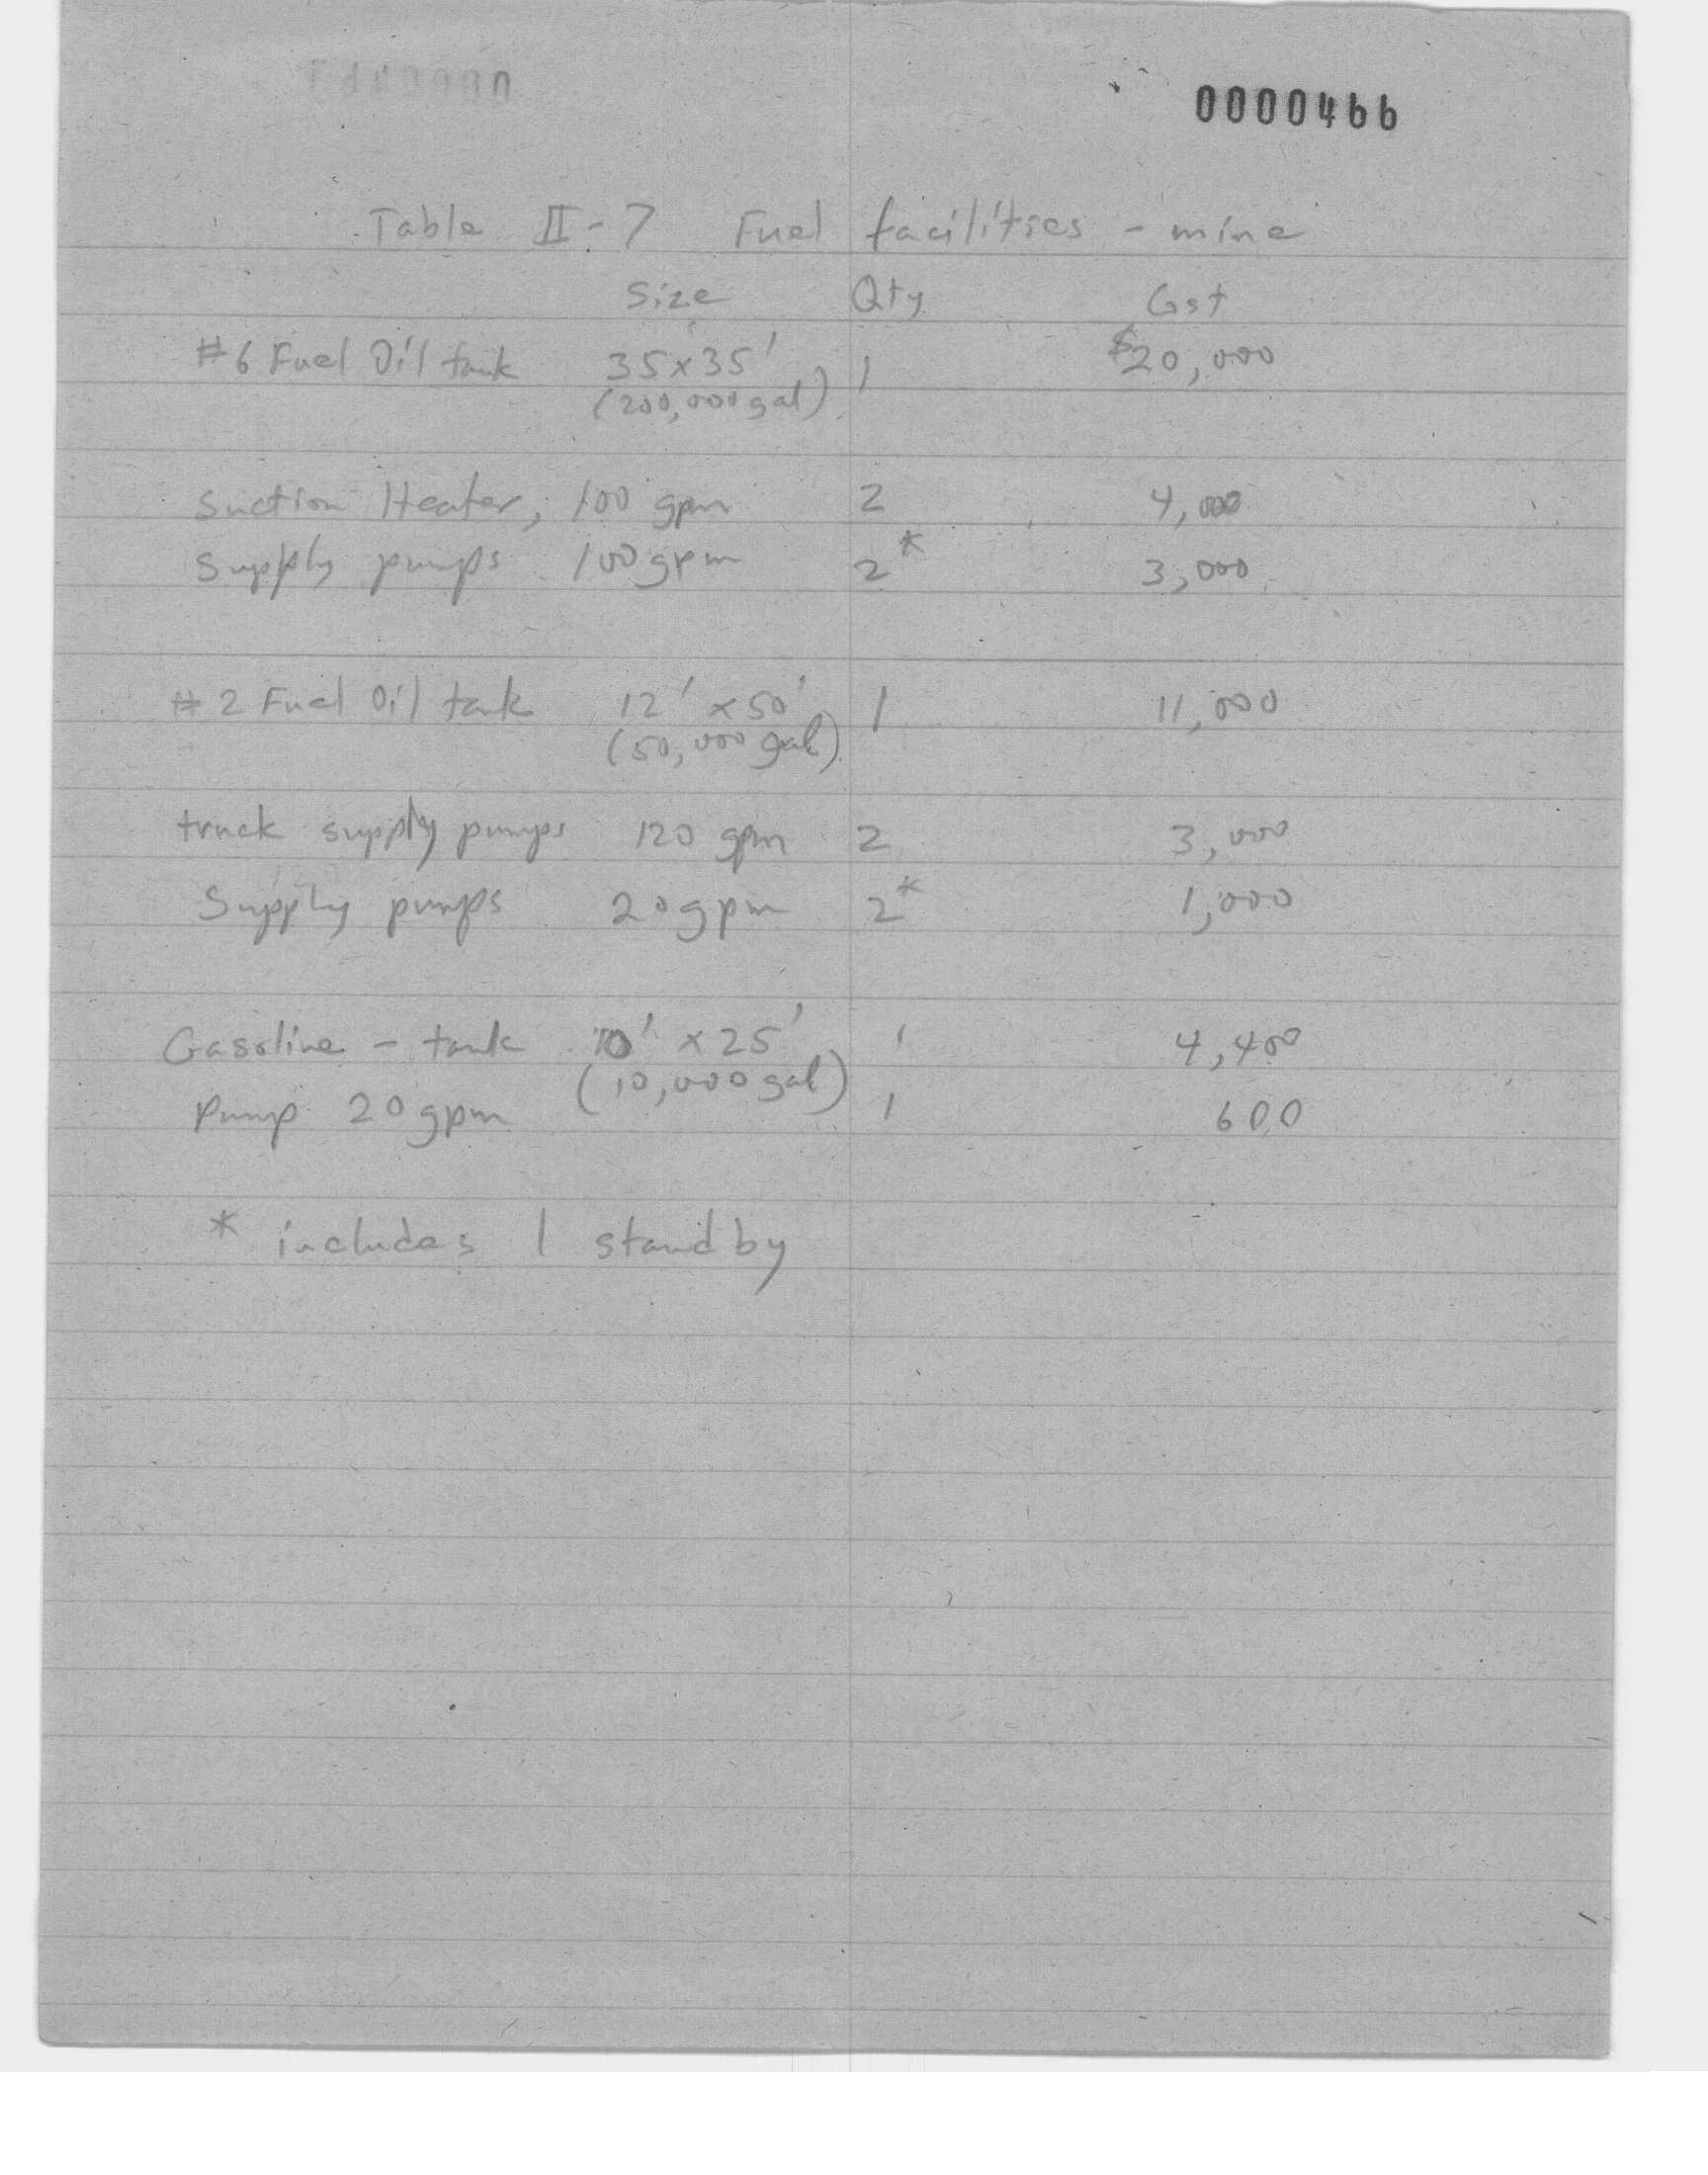 0000466
Table II-7 Fuel facilities - mine
Size Qty Cost
#6 Fuel Oil tank 35'x35' 1 $20,000
(200,000 gal)
Suction Heater, 100 gpm 2 4,000
Supply pumps 100 gpm 2* 3,000
#2 Fuel Oil tank 12' x 50' 1 11,000
(50,000 gal)
truck supply pumps 120 gpm 2 3,000
Supply pumps 20 gpm 2* 1,000
Gasoline - tank 10' x 25' 1 4,400
(10,000 gal)
Pump 20 gpm 1 600
* includes 1 standby